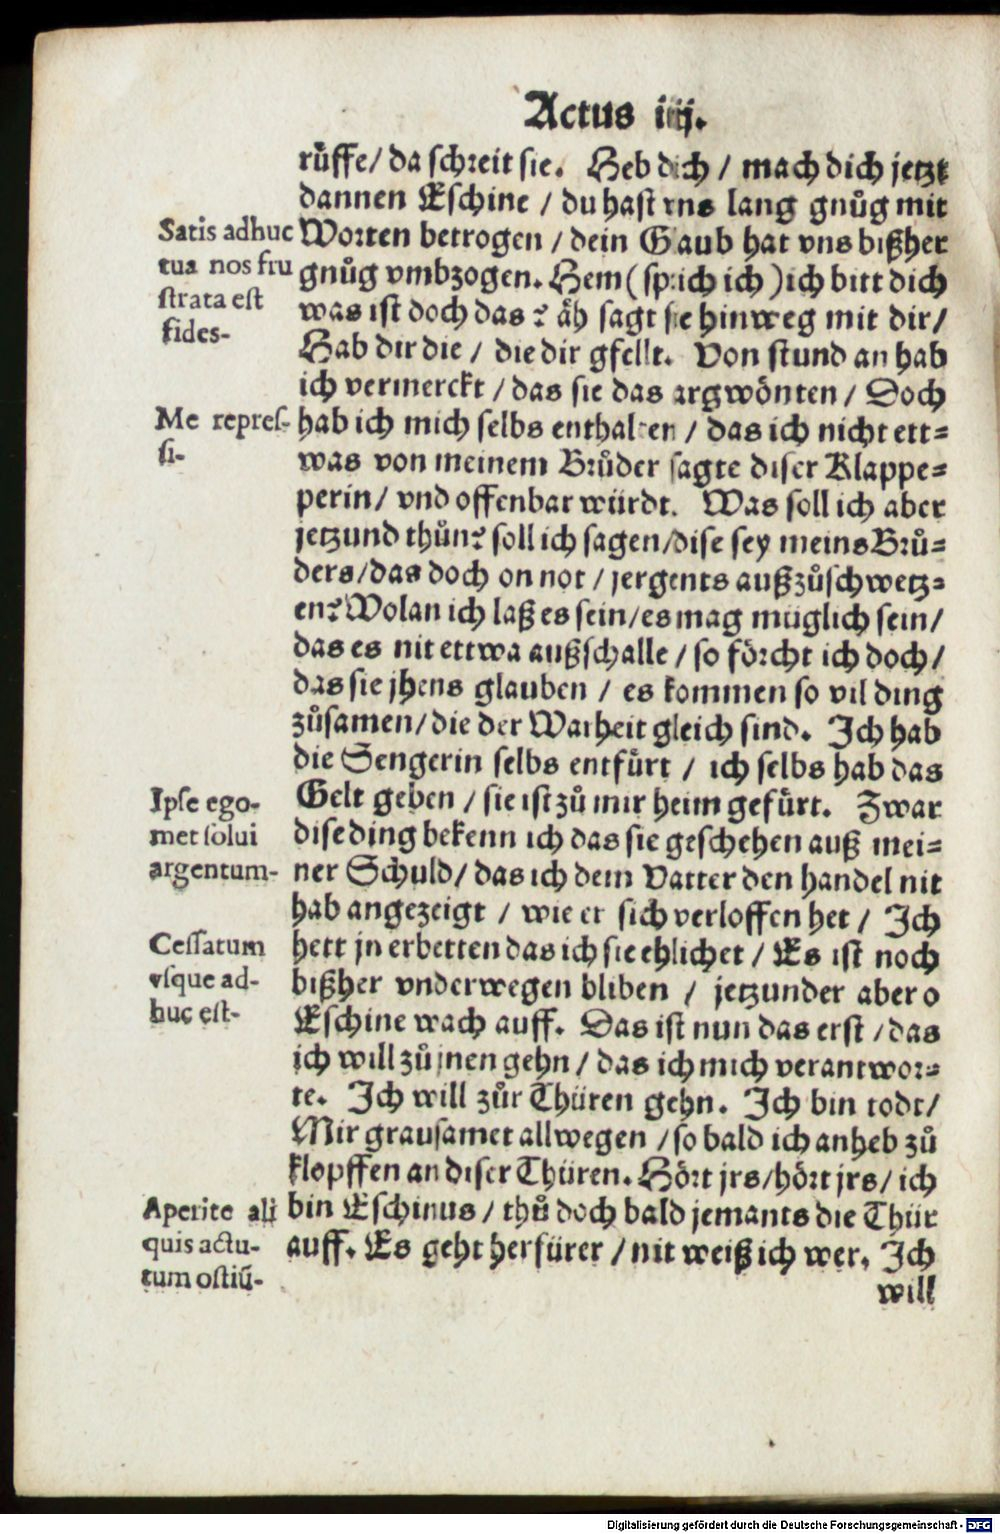 Actus iiij.
rüffe/ da schreit sie. Heb dich / mach dich jetzt
dannen Eschine / du hast vns lang gnůg mit
Worten betrogen / dein Glaub hat vns bißher
gnůg vmbzogen. Hem ( sprich ich ) ich bitt dich
was ist doch das ? äh sagt sie hinweg mit dir/
Hab dir die / die dir gfellt. Von stund an hab
ich vermerckt / das sie das argwönten / Doch
hab ich mich selbs enthalten / das ich nicht ett=
was von meinem Brůder sagte diser Klappe=
perin/ vnd offenbar würdt. Was soll ich aber
jetzund thůn? soll ich sagen/dise sey meins Brů=
ders/das doch on not / jergents außzůschwetz=
en? Wolan ich laß es sein/es mag müglich sein/
das es nit ettwa außschalle / so förcht ich doch/
das sie jhens glauben / es kommen so vil ding
zůsamen/die der Warheit gleich sind. Ich hab
die Sengerin selbs entfürt / ich selbs hab das
Gelt geben / sie ist zů mir heim gefürt. Zwar
dise ding bekenn ich das sie geschehen auß mei=
ner Schuld/ das ich dem Vatter den handel nit
hab angezeigt / wie er sich verloffen het / Ich
hett jn erbetten das ich sie ehlichet / Es ist noch
bißher vnderwegen bliben / jetzunder aber o
Eschine wach auff. Das ist nun das erst / das
ich will zů jnen gehn / das ich mich verantwor=
te. Ich will zůr Thüren gehn. Ich bin todt/
Mir grausamet allwegen / so bald ich anheb zů
klopffen an diser Thüren. Hört jrs/hört jrs/ ich
bin Eschinus / thů doch bald jemants die Thür
auff. Es geht herfürer / nit weiß ich wer. Ich
will
Satis adhuc
tua nos fru
strata est
fides-
Me repres-
si-
Ipse ego-
met solui
argentum-
Cessatum
vsque ad-
huc est-
Aperite ali
quis actu-
tum ostiū-
Digitalisierung gefördert durch die Deutsche Forschungsgemeinschaft - DFG